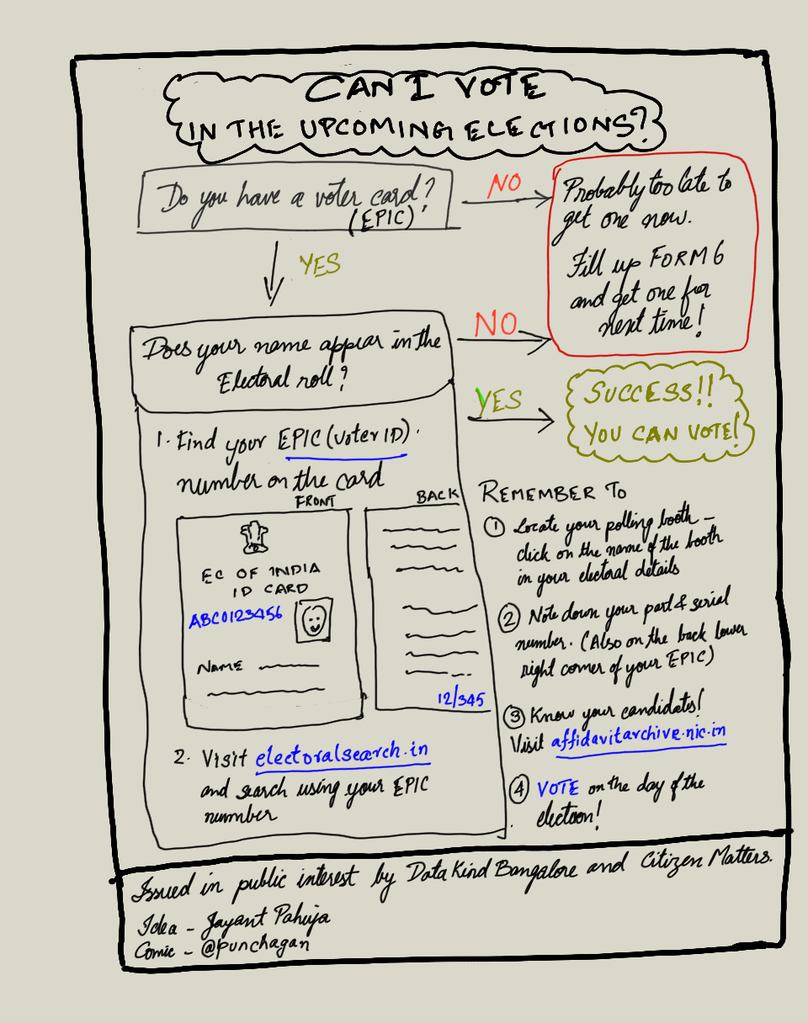 CAN I VOTE
IN THE UPCOMING ELECTIONS?
Do you have a voter card?
(EPIC)
NO
Probably too late to
get one now.
Fill up FORM 6
and get one for
next time!
YES
Does your name appear in the
Electoral roll?
NO
YES
SUCCESS!!
YOU CAN VOTE!
1. Find your EPIC (Voter ID)
number on the card
FRONT
BACK
EC OF INDIA
ID CARD
ABC0123456
NAME
12/345
2. Visit electoralsearch.in
and search using your EPIC
number
REMEMBER TO
1 Locate your polling booth -
click on the name of the booth
in your electoral details
2 Note down your part & serial
number. (Also on the back lower
right corner of your EPIC)
3 Know your candidates!
Visit affidavitarchive.nic.in
4 VOTE on the day of the
election!
Issued in public interest by DataKind Bangalore and Citizen Matters.
Idea - Jayant Pahuja
Comic - @punchagan